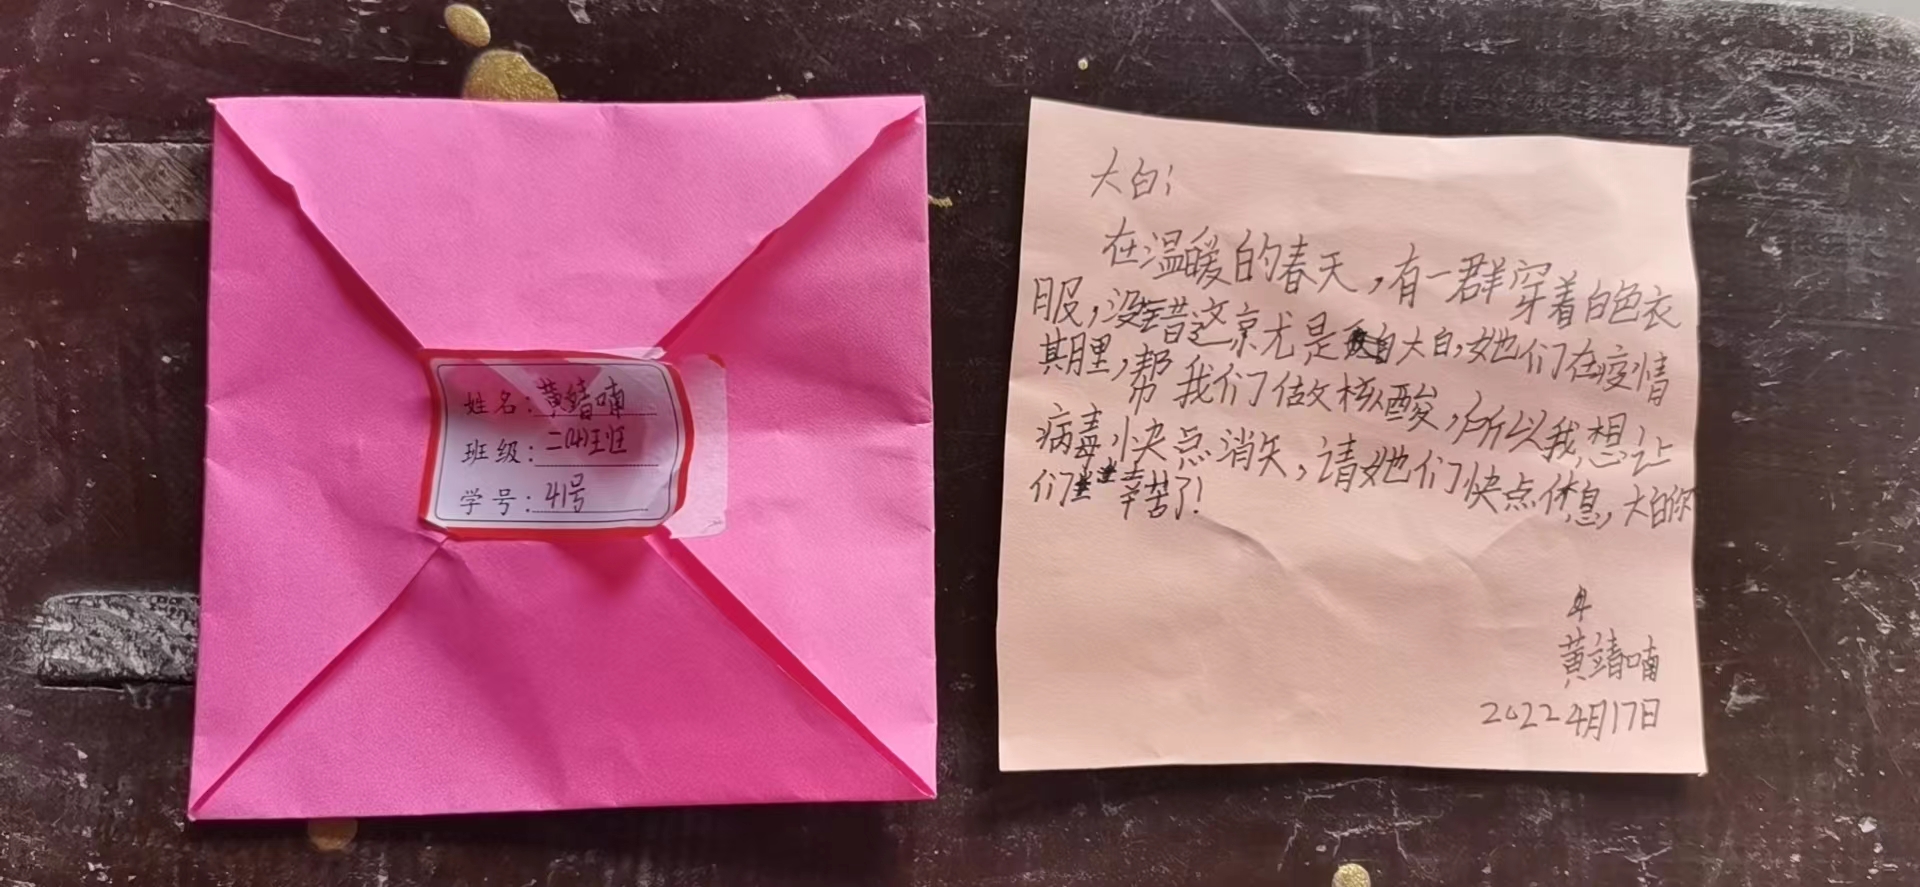 姓名:黄婧喃
班级:二(4)班
学号:41号
大白:
在温暖的春天,有一群穿着白色衣
服,没错这就是大白,她们在疫情
其里,帮我们做核酸,所以我想让
病毒快点消失,请她们快点休息,大白你
们幸苦了!
黄婧喃
2022 4月17日